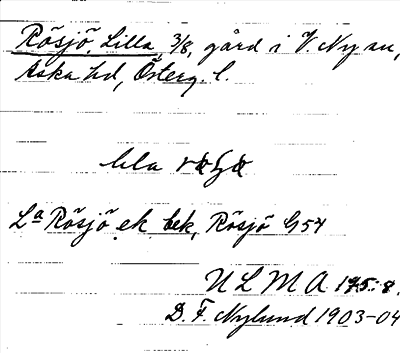 Rösjö, Lilla, 3/8, gård i V. Ny sn,
Aska hd, Österg. l.
lila
La Rösjö ek bek, Rösjö G 54
ULMA 195:8.
D. F. Nylund 1903-04